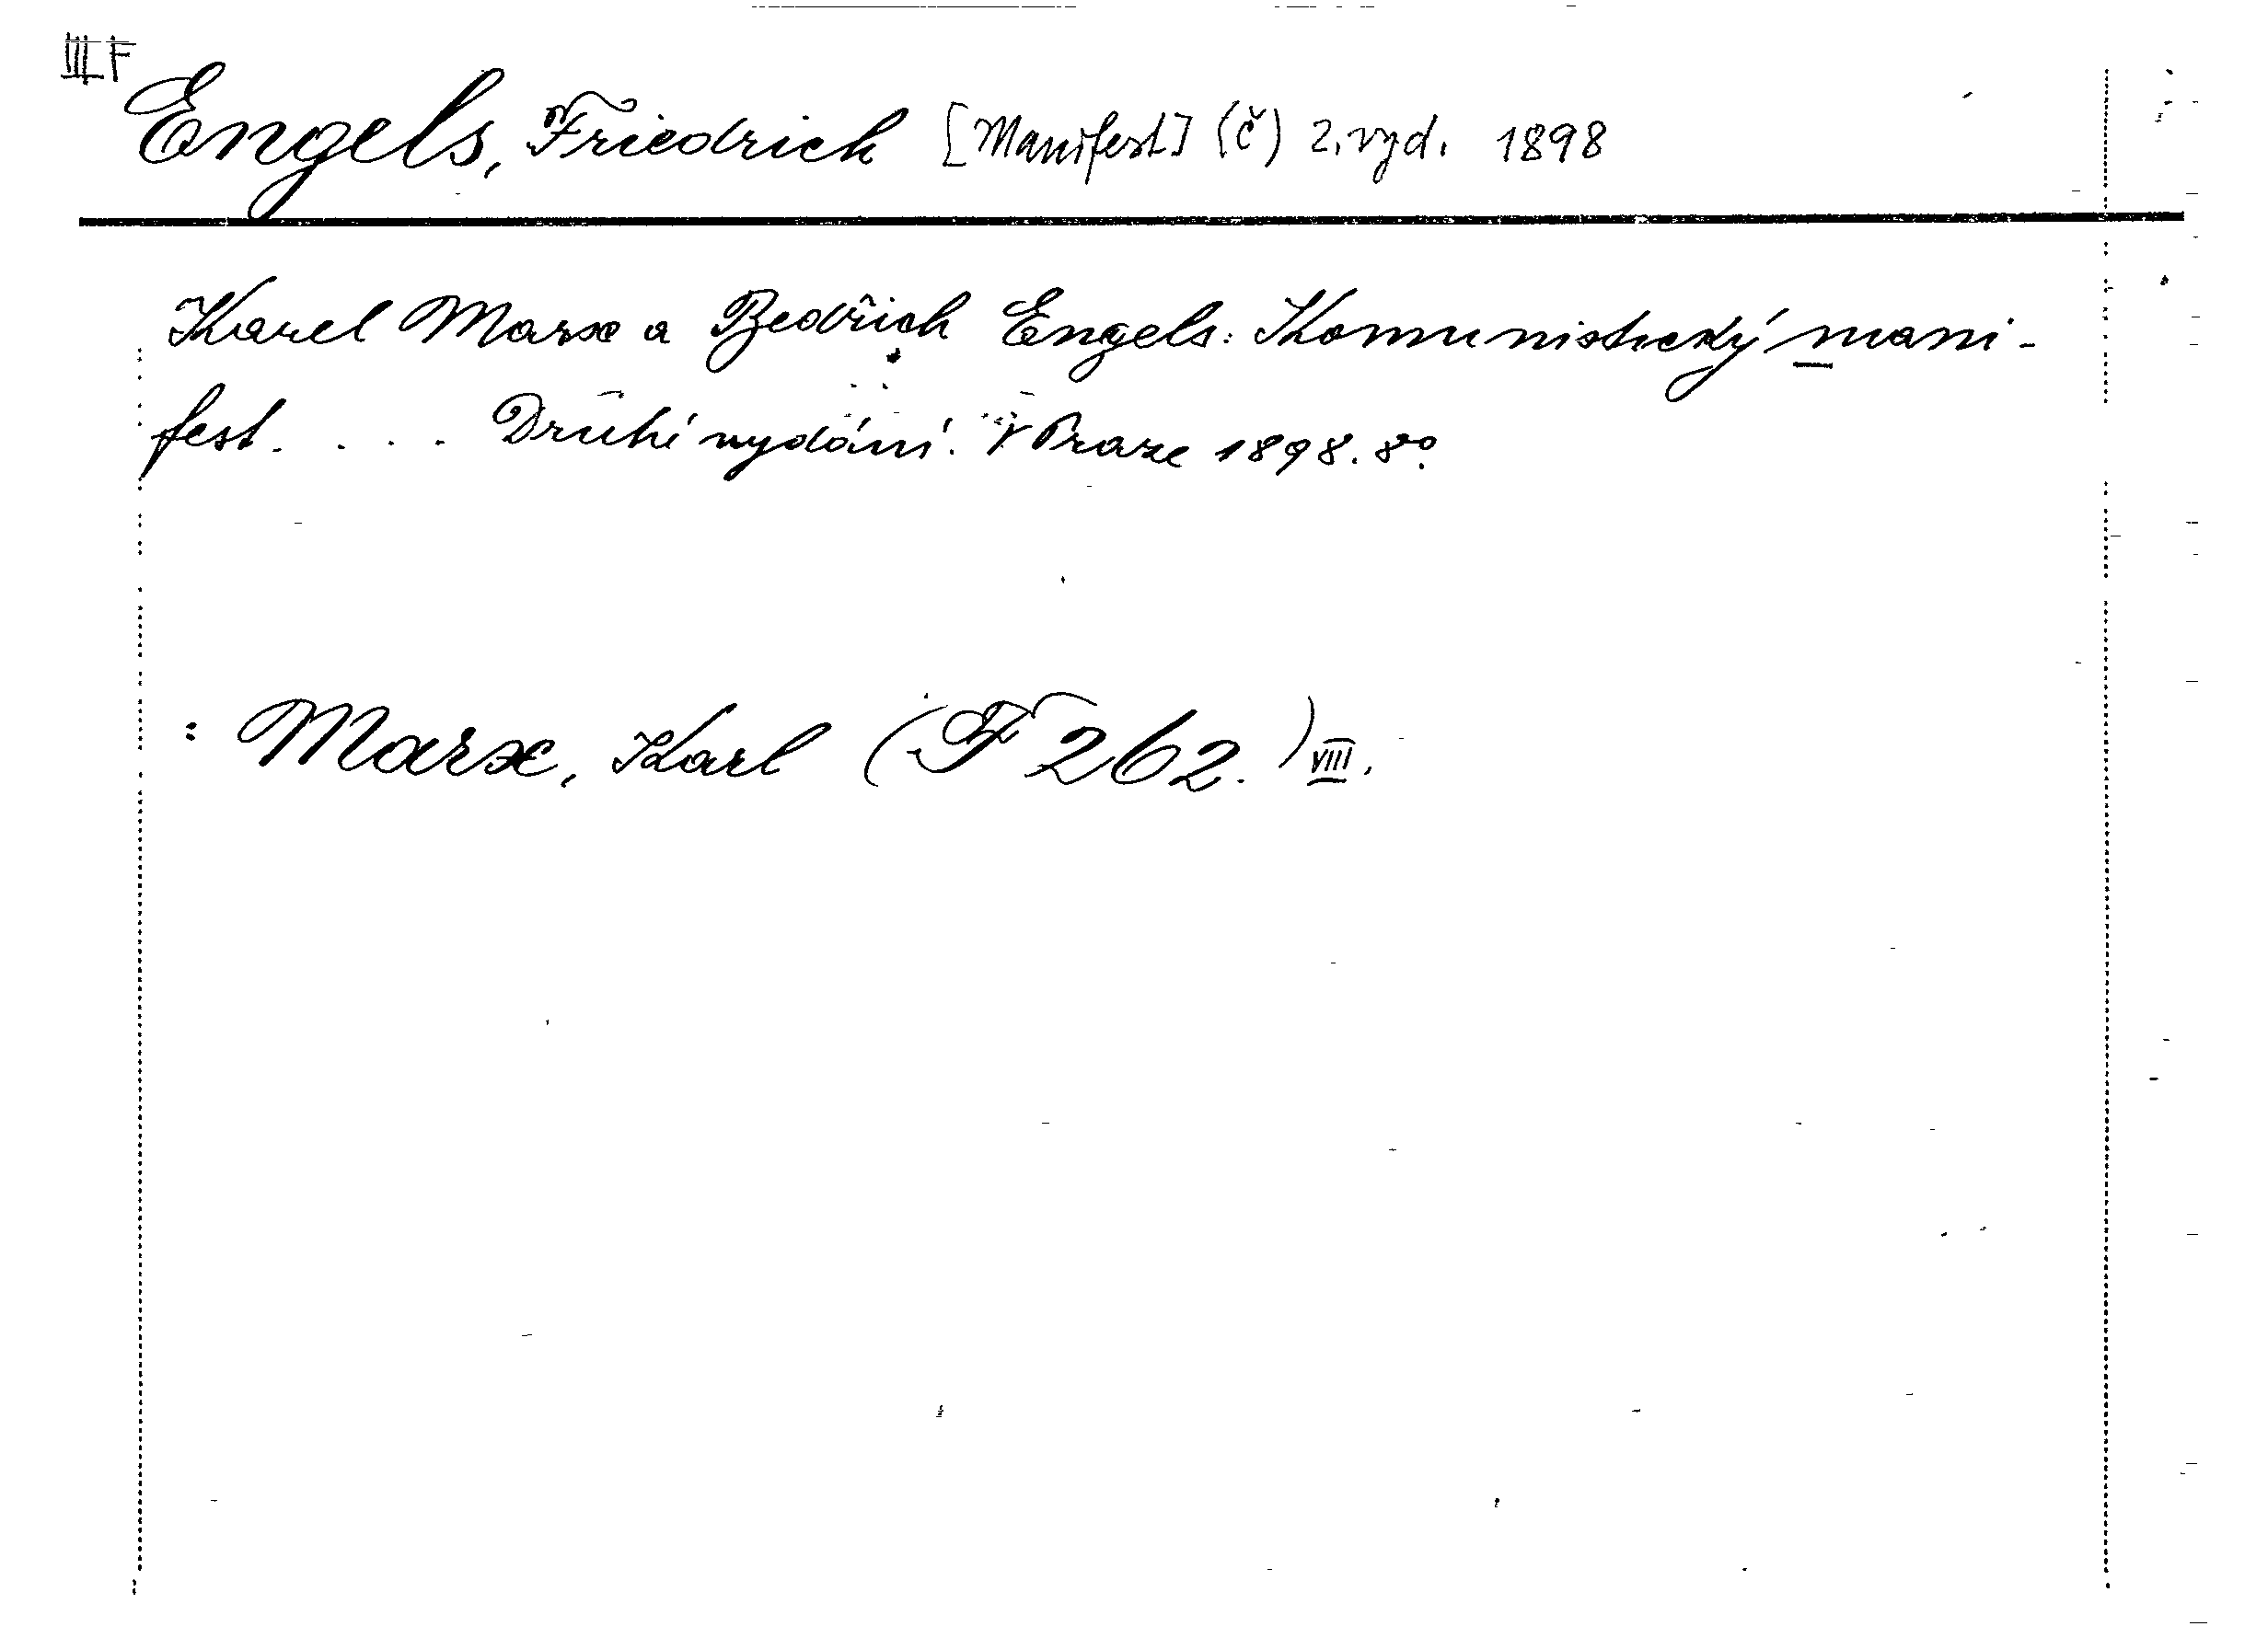 III F
Engels, Friedrich [Manifest] (č) 2. vyd. 1898
Karel Marx a Bedřich Engels: Komunistický mani-
fest. . . . Druhé vydání. V Praze 1898. 8º.
: Marx, Karl (F 262.) VIII.